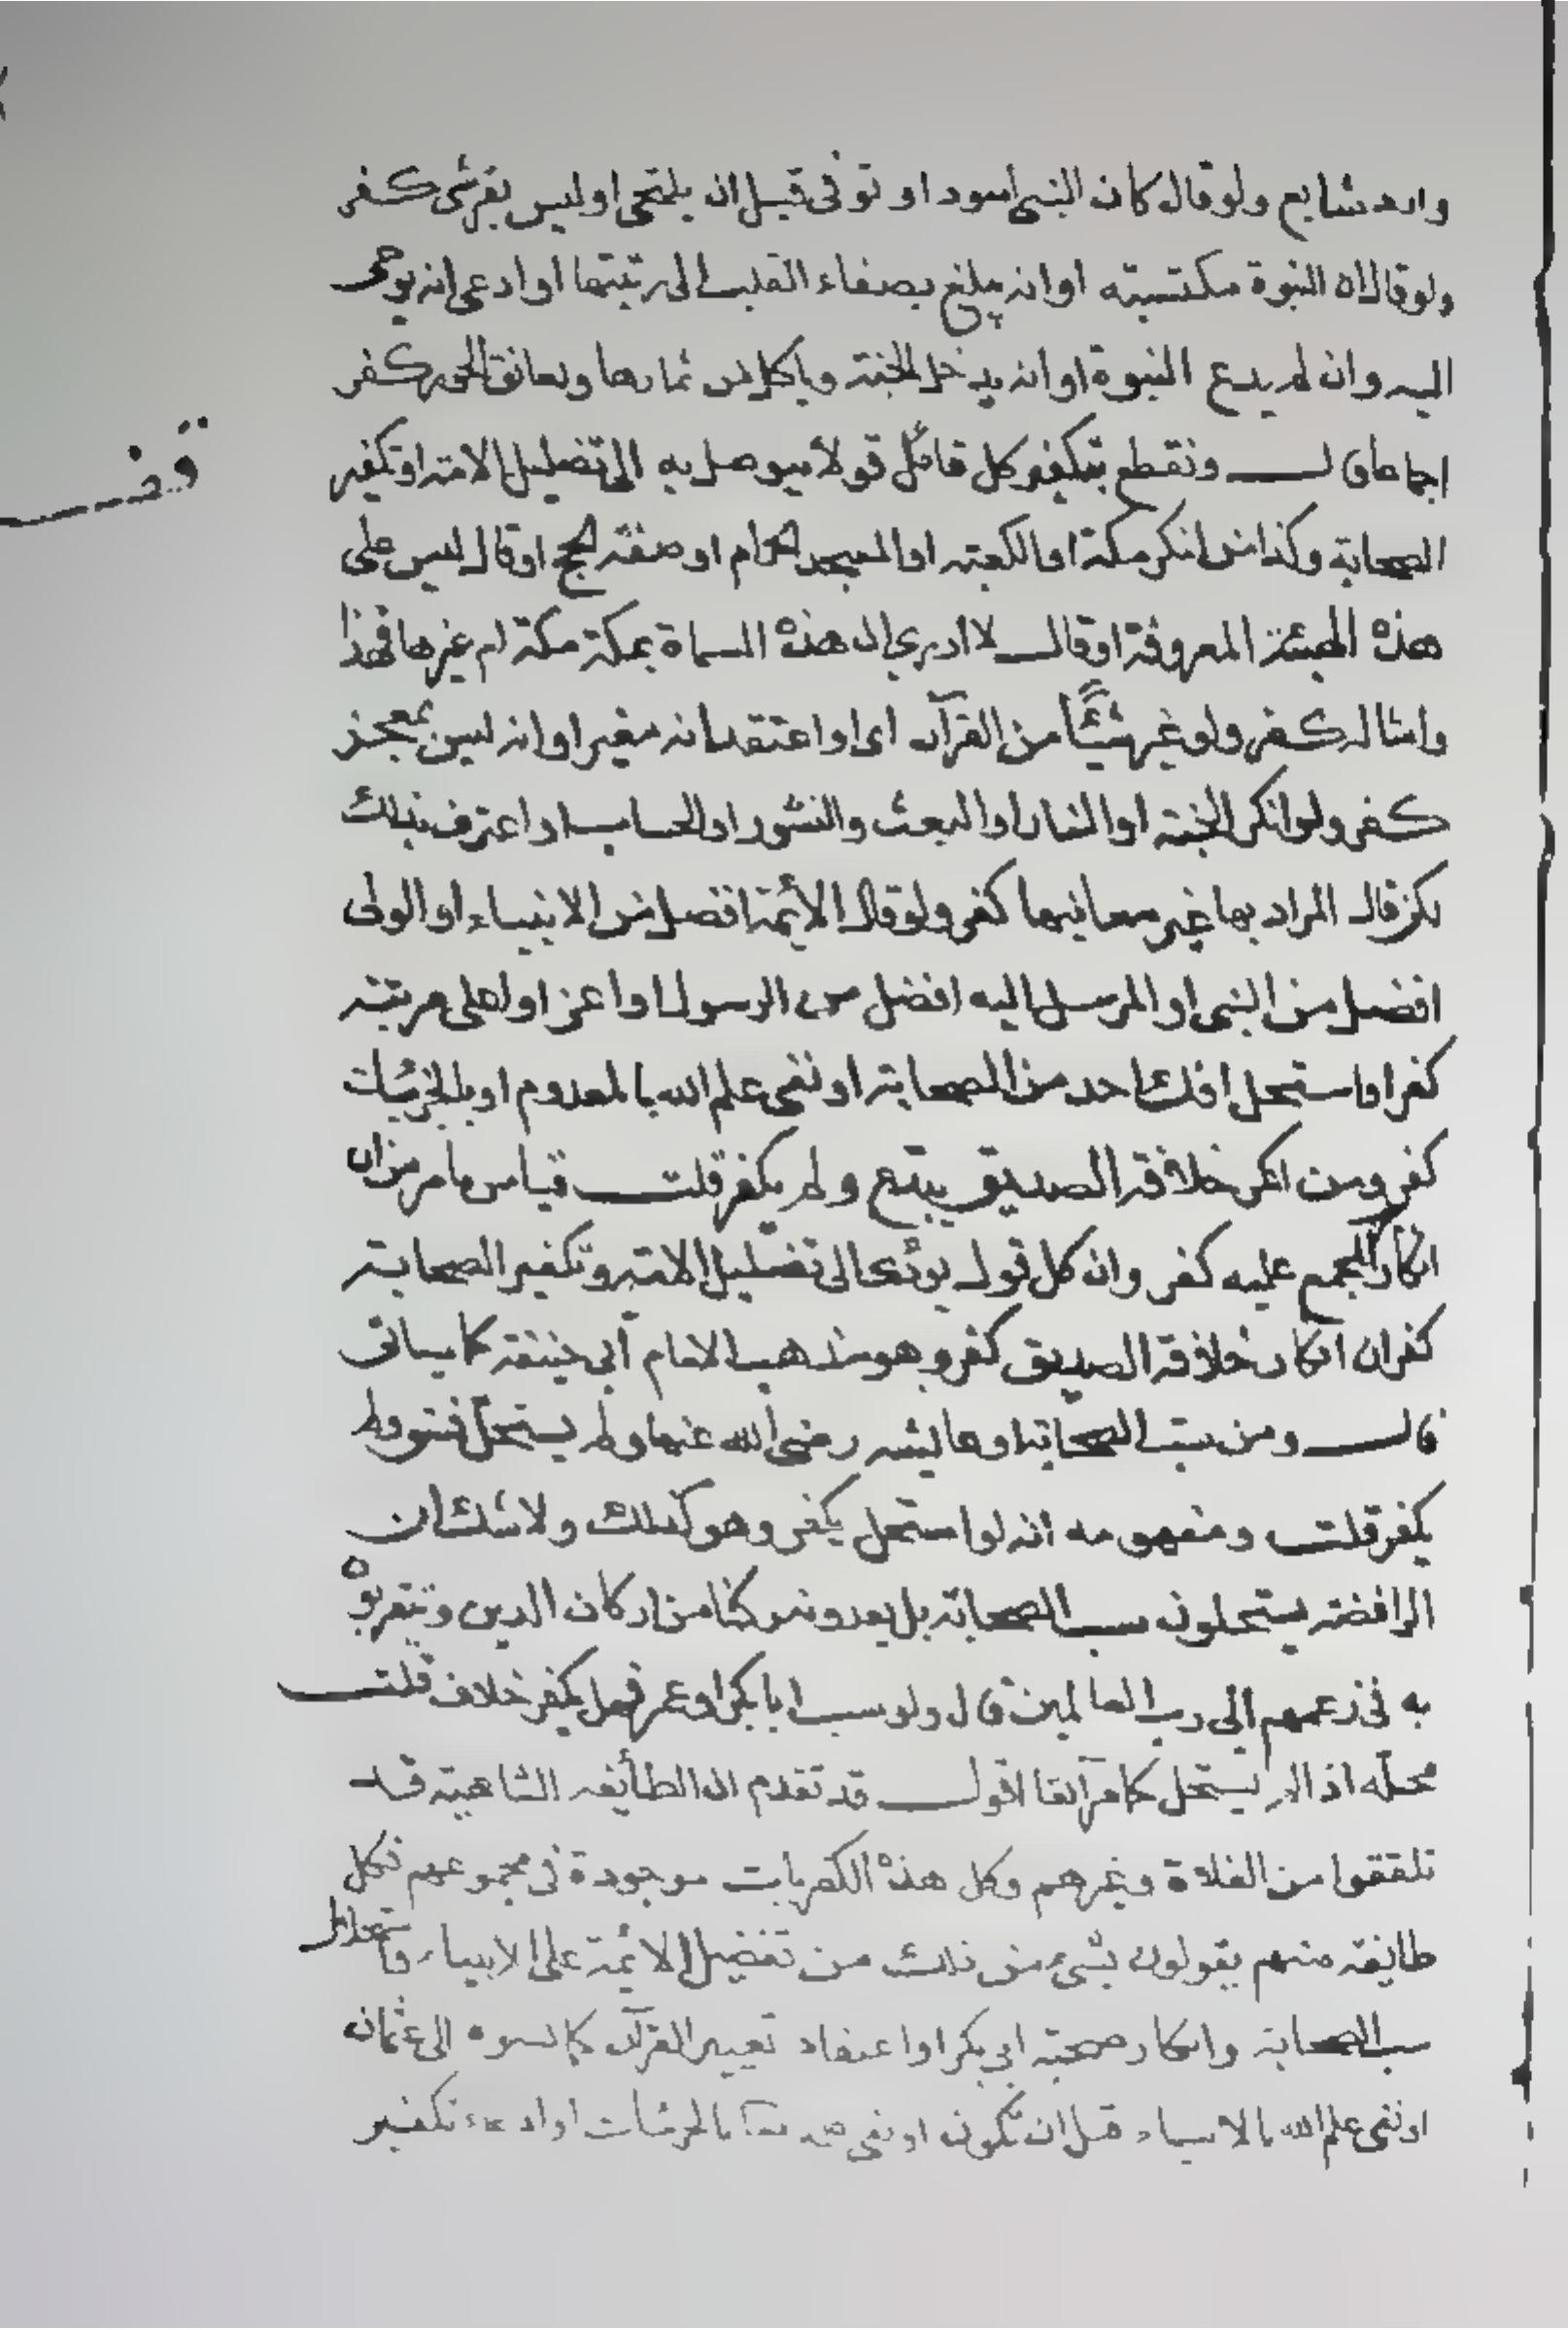 ولو قال كان النبي اسود او توفى قبل ان يلتحى اوليس بقرشى كفر
ولو قال ان النبوة مكتسبته او انه يبلغ بصفاء القلب الى رتبتها او ادعى انه يوحى
اليه وان لم يدع النبوة او انه يدخل الجنة وياكل من ثمارها ويعانق الحور كفر
اجماعا قال ونقطع بتكفير كل قائل قولا يتوصل به الى تضليل الامة او تكفير
الصحابة وكذا من انكر مكة او الكعبة او المسجد الحرام او صفة الحج او قال ليس على
هذه الهيئة المعروفة او قال لا ادري ان هذه المسماة بمكة مكة ام غيرها فهذا
وامثاله كفر ولو غير شيئًا من القرآن اى او اعتقد انه مغير او انه ليس بمعجز
كفر ولو انكر الجنة او النار او البعث والنشور او الحساب او اعترف بذلك
لكن قال المراد بها غير معانيها كفر ولو قال الأئمة افضل من الانبياء او الولى
افضل من النبى او المرسل اليه افضل من الرسول او اعز او اعلى مرتبة
كفر او استحل افك احد من الصحابة او نفى علم الله بالمعدوم او بالجزئيات
كفر ومن انكر خلافة الصديق يبتدع ولم يكفر قلت قياس ما مر من ان
انكار المجمع عليه كفر وان كل قول يؤدى الى تضليل الامة وتكفير الصحابة
كفر ان انكار خلافة الصديق كفر وهو مذهب الامام أبى حنيفة كما سياتى
قال ومن سب الصحابة او عايشه رضى الله عنها ولم يستحل فسق ولم
يكفر قلت ومفهومه انه لو استحل يكفر وهو كذلك ولا شك ان
الرافضة يستحلون سب الصحابة بل يعدونه ركنا من اركان الدين ويتقربو
به فى زعمهم الى رب العالمين قال ولو سب ابا بكر او عمر فهل يكفر خلاف قلت
محله اذا لم يستحل كما مر آنفا اقول قد تقدم ان الطائفه الشاهية قد
تلفقوا من الغلاة وغيرهم وكل هذه الكفريات موجودة فى مجموعهم فكل
طايفة منهم يقولون بشىء من ذلك من تفضيل الائمة على الانبياء واستحلال
سب الصحابة وانكار صحبة ابى بكر او اعتقاد تغيير القرآن كما نسبوه الى عثمان
او نفى علم الله بالاشياء قبل ان تكون او نفى بالجزئيات او ادعاء تكفير